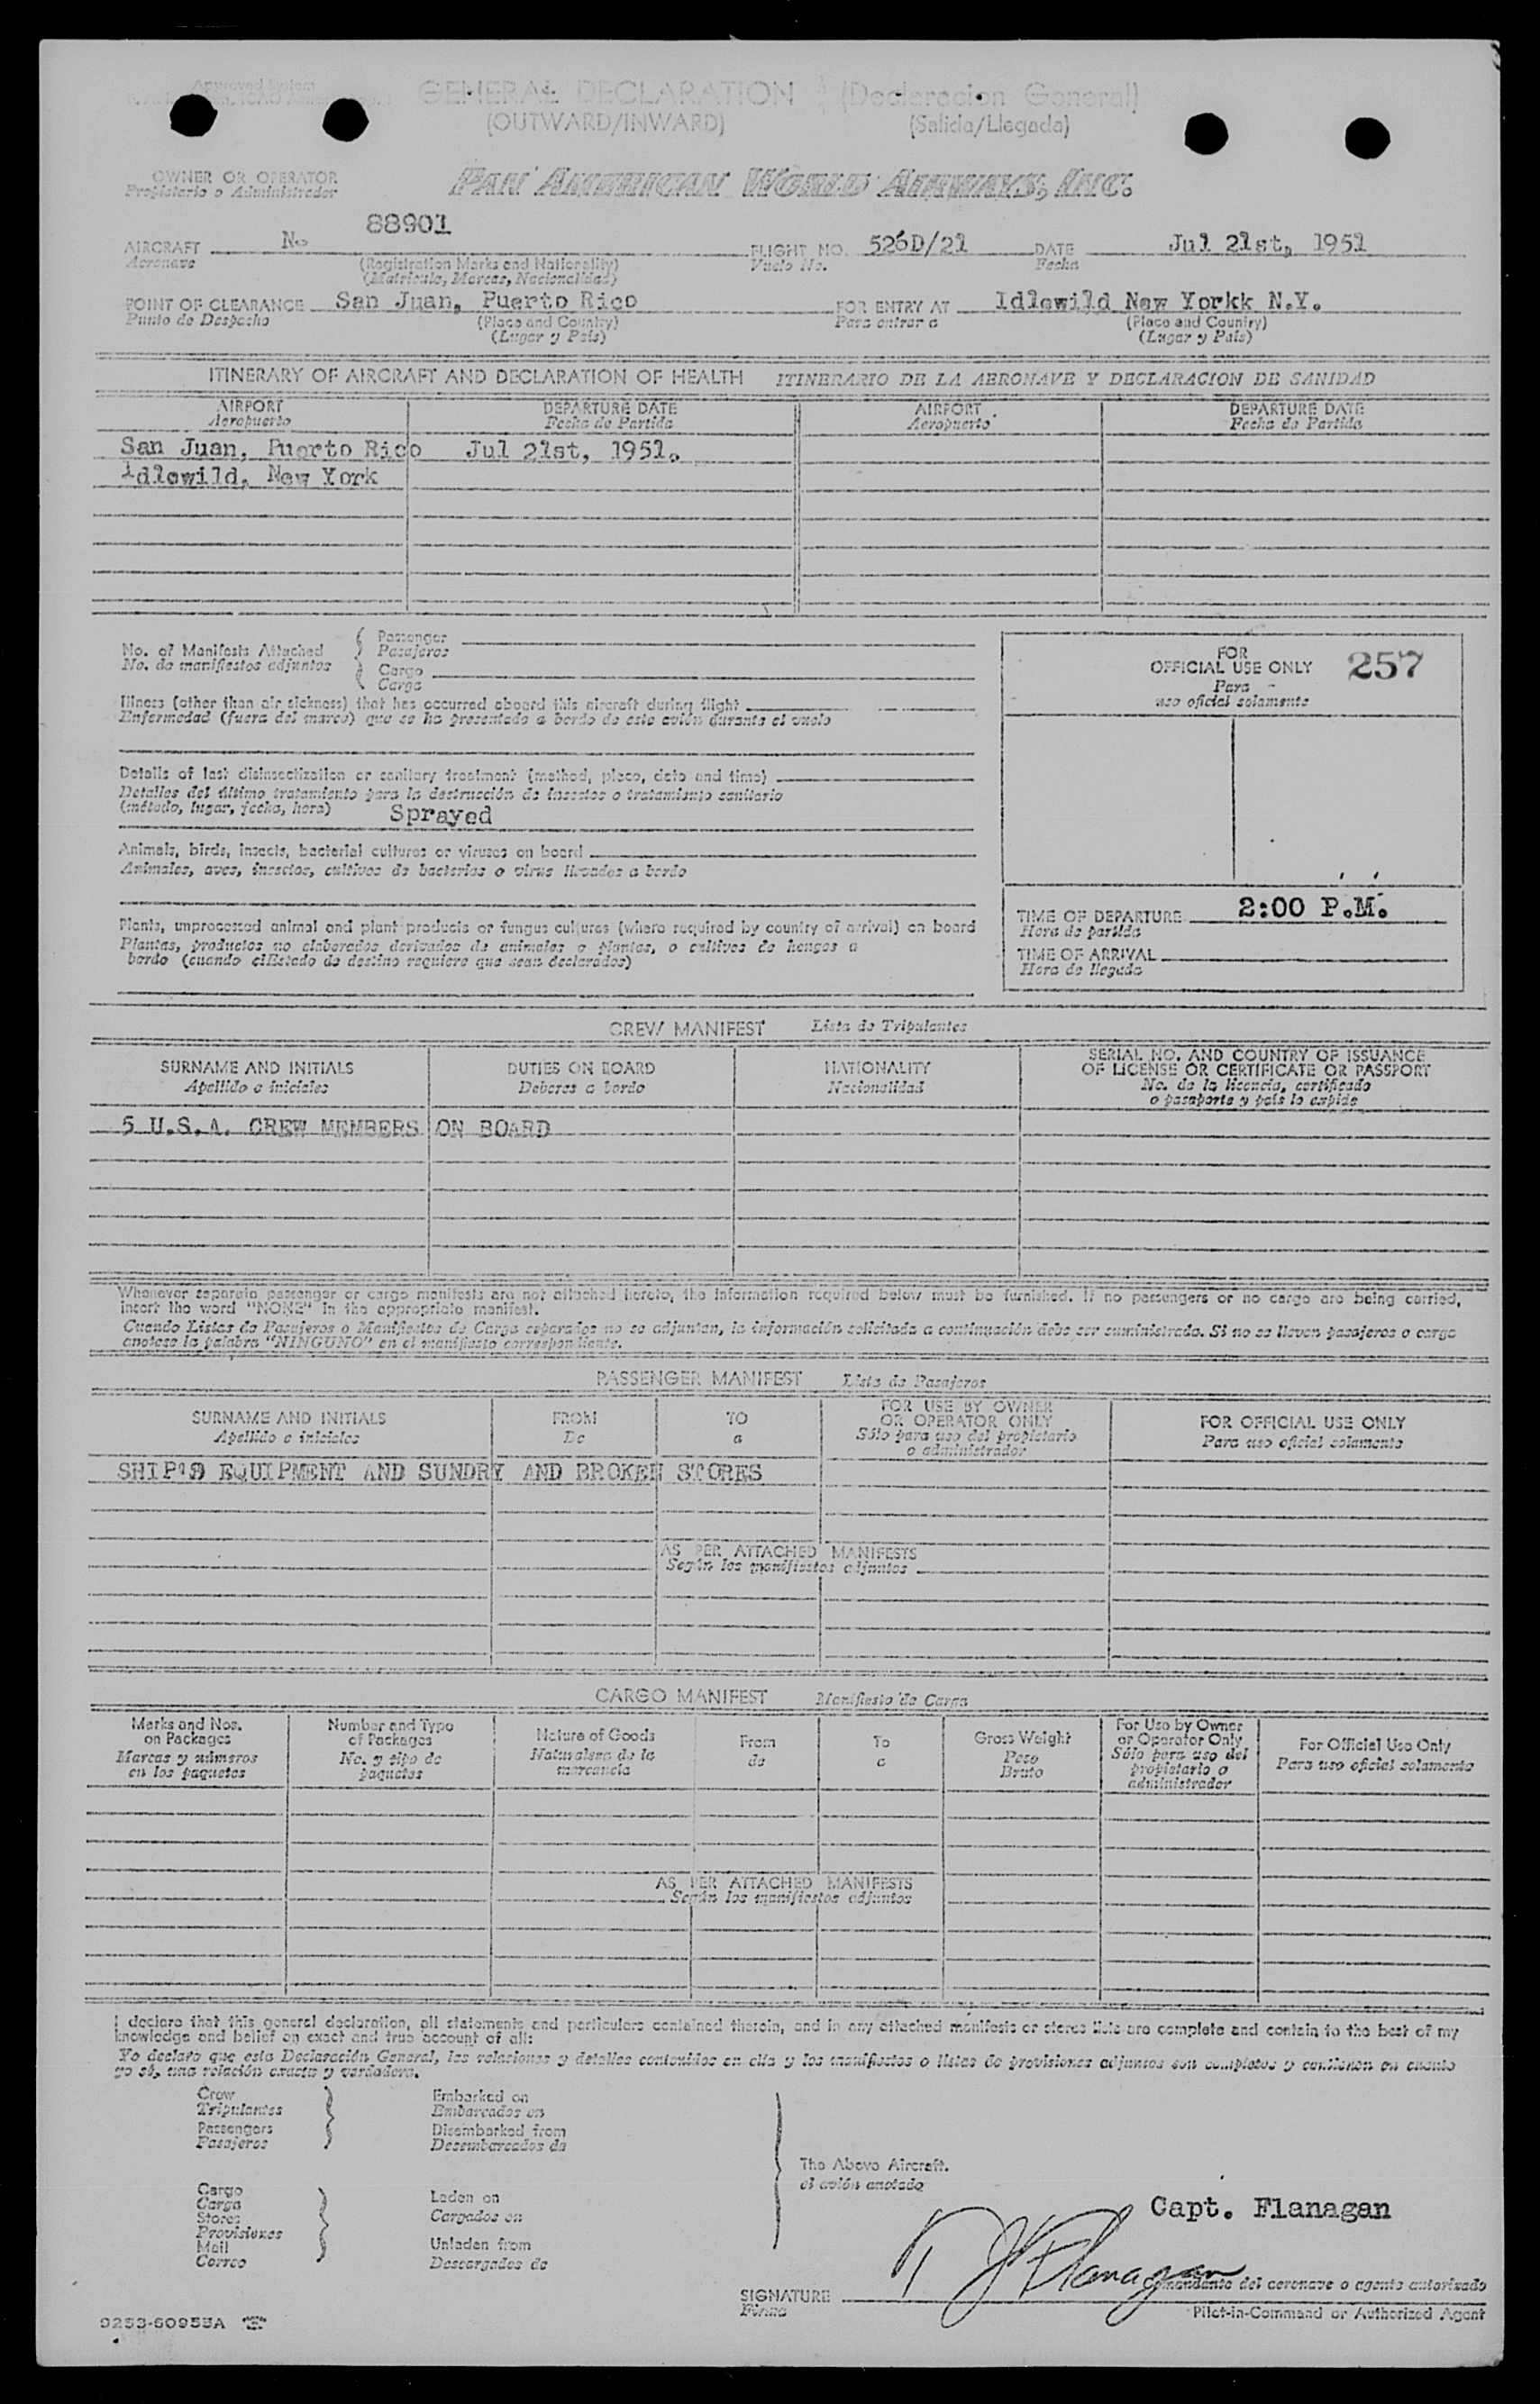 Approved System
GENERAL DECLARATION (Declaracion General)
(OUTWARD/INWARD) (Salida/Llegada)
OWNER OR OPERATOR PAN AMERICAN WORLD AIRWAYS, INC.
Propietario o Administrador
88901
AIRCRAFT N. FLIGHT NO. 526D/21 DATE Jul 21st, 1951
Aeronave (Registration Marks and Nationality) Vuelo No. Fecha
(Matricula, Marcas, Nacionalidad)
POINT OF CLEARANCE San Juan, Puerto Rico FOR ENTRY AT Idlewild New Yorkk N.Y.
Punto de Despacho (Place and Country) Para entrar a (Place and Country)
(Lugar y País) (Lugar y País)
ITINERARY OF AIRCRAFT AND DECLARATION OF HEALTH ITINERARIO DE LA AERONAVE Y DECLARACION DE SANIDAD
AIRPORT DEPARTURE DATE AIRPORT DEPARTURE DATE
Aeropuerto Fecha de Partida Aeropuerto Fecha de Partida
San Juan, Puerto Rico Jul 21st, 1951.
Idlewild, New York
No. of Manifests Attached Passenger
No. de manifiestos adjuntos Pasajeros
Cargo
Carga
FOR
OFFICIAL USE ONLY 257
Para
uso oficial solamente
Illness (other than air sickness) that has occurred aboard this aircraft during flight
Enfermedad (fuera del mareo) que se ha presentado a bordo de este avión durante el vuelo
Details of last disinsectization or sanitary treatment (method, place, date and time)
Detalles del último tratamiento para la destrucción de insectos o tratamiento sanitario
(método, lugar, fecha, hora) Sprayed
Animals, birds, insects, bacterial cultures or viruses on board
Animales, aves, insectos, cultivos de bacterias o virus llevados a bordo
Plants, unprocessed animal and plant products or fungus cultures (where required by country of arrival) on board
Plantas, productos no elaborados derivados de animales o plantas, o cultivos de hongos a
bordo (cuando el Estado de destino requiere que sean declarados)
TIME OF DEPARTURE 2:00 P.M.
Hora de partida
TIME OF ARRIVAL
Hora de llegada
CREW MANIFEST Lista de Tripulantes
SURNAME AND INITIALS DUTIES ON BOARD NATIONALITY SERIAL NO. AND COUNTRY OF ISSUANCE
OF LICENSE OR CERTIFICATE OR PASSPORT
Apellido e iniciales Deberes a bordo Nacionalidad No. de la licencia, certificado
o pasaporte y país lo expide
5 U.S.A. CREW MEMBERS ON BOARD
Whenever separate passenger or cargo manifests are not attached hereto, the information required below must be furnished. If no passengers or no cargo are being carried,
insert the word "NONE" in the appropriate manifest.
Cuando Listas de Pasajeros o Manifiestos de Carga separados no se adjuntan, la información solicitada a continuación debe ser suministrada. Si no se llevan pasajeros o carga
anotese la palabra "NINGUNO" en el manifiesto correspondiente.
PASSENGER MANIFEST Lista de Pasajeros
SURNAME AND INITIALS FROM TO FOR USE BY OWNER
OR OPERATOR ONLY FOR OFFICIAL USE ONLY
Apellido e iniciales De a Sólo para uso del propietario
o administrador Para uso oficial solamente
SHIP'S EQUIPMENT AND SUNDRY AND BROKEN STORES
AS PER ATTACHED MANIFESTS
Según los manifiestos adjuntos
CARGO MANIFEST Manifiesto de Carga
Marks and Nos.
on Packages
Marcas y números
en los paquetes
Number and Type
of Packages
No. y tipo de
paquetes
Nature of Goods
Naturaleza de la
mercancía
From
de
To
a
Gross Weight
Peso
Bruto
For Use by Owner
or Operator Only
Sólo para uso del
propietario o
administrador
For Official Use Only
Para uso oficial solamente
AS PER ATTACHED MANIFESTS
Según los manifiestos adjuntos
I declare that this general declaration, all statements and particulars contained therein, and in any attached manifests or stores lists are complete and contain to the best of my
knowledge and belief an exact and true account of all:
Yo declaro que esta Declaración General, las relaciones y detalles contenidos en ella y los manifiestos o listas de provisiones adjuntos son completos y contienen en cuanto
yo sé, una relación exacta y verdadera.
Crew Embarked on
Tripulantes Embarcados en
Passengers Disembarked from
Pasajeros Desembarcados de
The Above Aircraft.
el avión anotado
Cargo Laden on
Carga Cargados en
Stores
Provisiones
Mail Unladen from
Correo Descargados de
Capt. Flanagan
T J Flanagan
SIGNATURE Comandante del aeronave o agente autorizado
Firma Pilot-in-Command or Authorized Agent